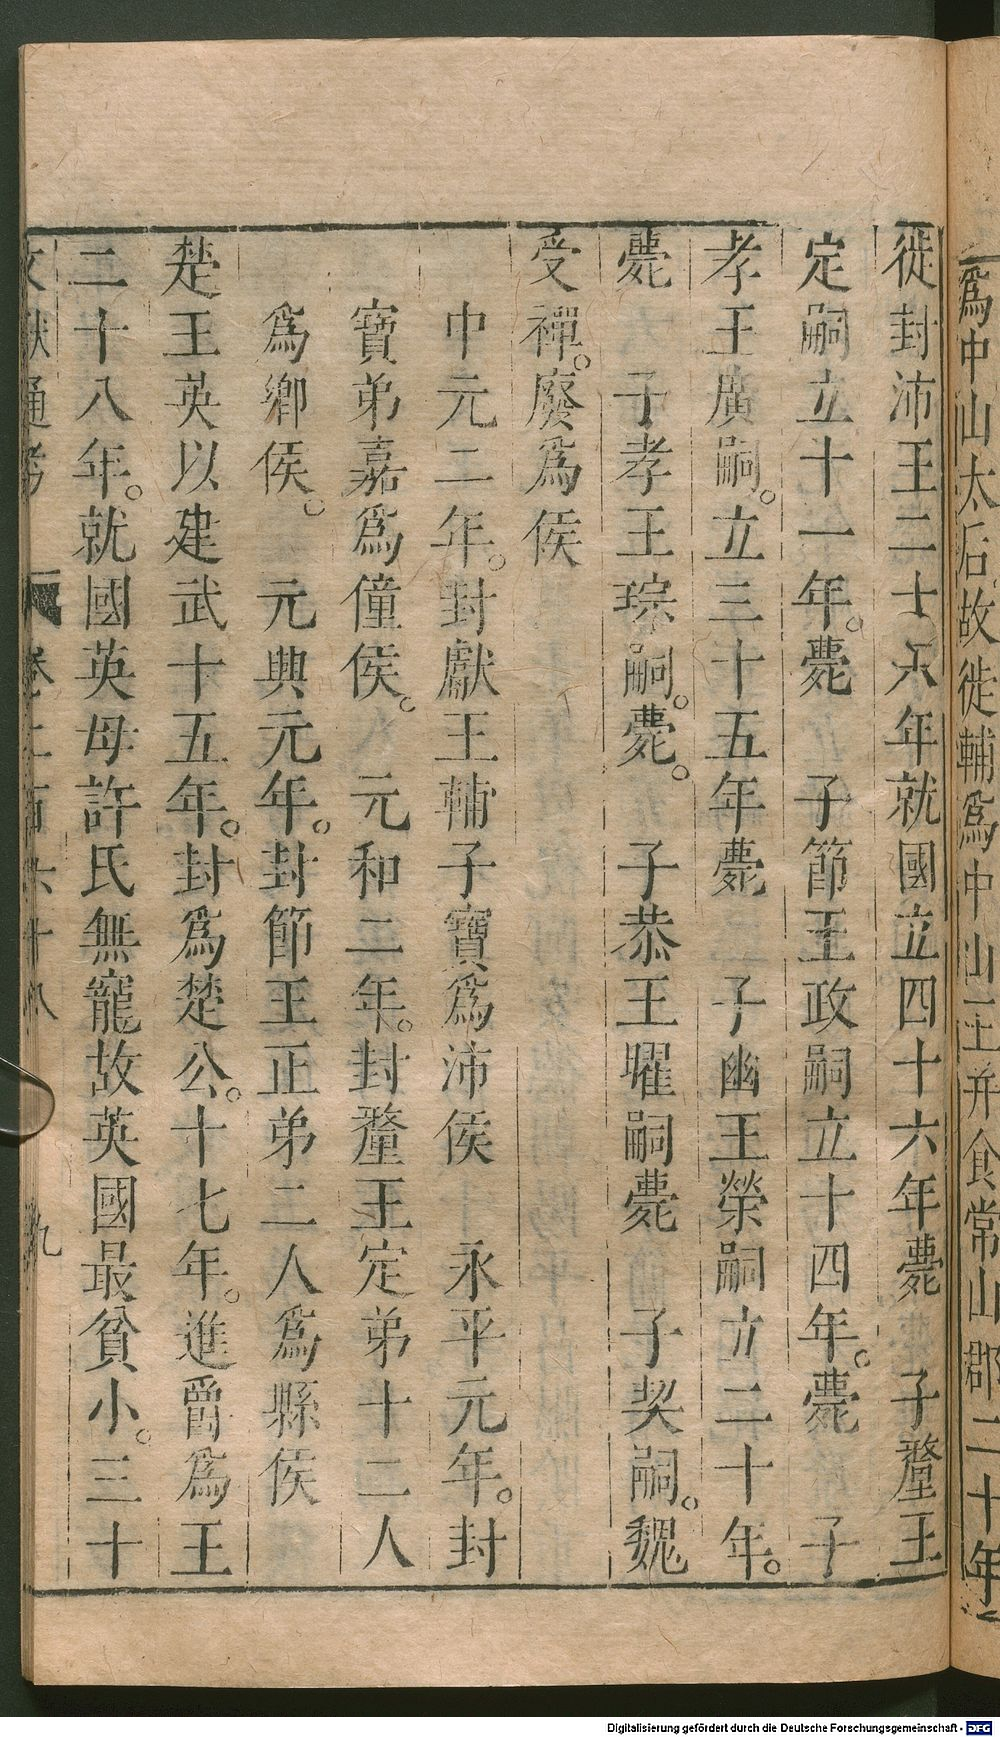 爲中山太后故徙輔爲中山王并食常山郡二十年
徙封沛王二十八年就國立四十六年薨　子釐王
定嗣立十一年。薨　子節王政嗣立十四年。薨　子
孝王廣嗣。立三十五年薨　子幽王榮嗣立二十年。
薨　子孝王琮嗣。薨。　子恭王曜嗣薨　子契嗣。魏
受禪。廢爲侯
中元二年。封獻王輔子寶爲沛侯　永平元年。封
寶弟嘉爲僮侯。　元和二年。封釐王定弟十二人
爲鄉侯。　元興元年。封節王正弟二人爲縣侯
楚王英以建武十五年。封爲楚公。十七年。進爵爲王
二十八年。就國英母許氏無寵故英國最貧小。三十
文獻通考　卷二百六十八　九
Digitalisierung gefördert durch die Deutsche Forschungsgemeinschaft - DFG